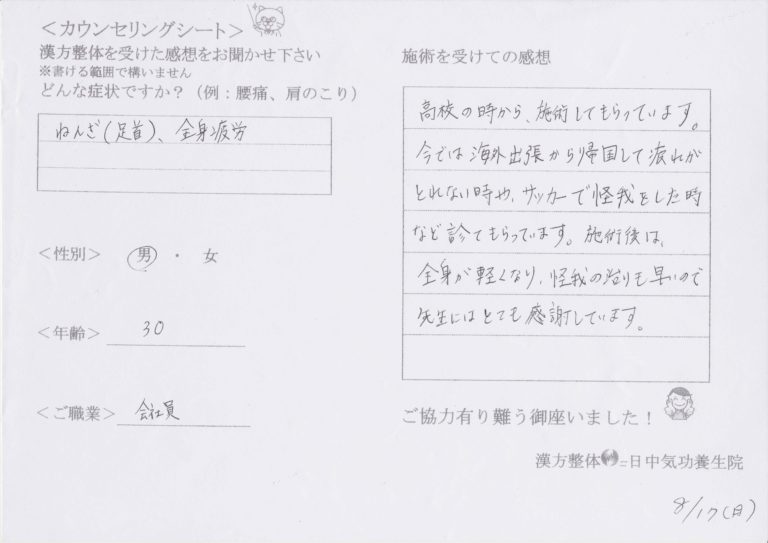 ＜カウンセリングシート＞
漢方整体を受けた感想をお聞かせ下さい
※書ける範囲で構いません
どんな症状ですか？（例：腰痛、肩のこり）
ねんざ(足首)、全身疲労
＜性別＞ 男 ・ 女
＜年齢＞ 30
＜ご職業＞ 会社員
施術を受けての感想
高校の時から、施術してもらっています。
今では海外出張から帰国して疲れが
とれない時や、サッカーで怪我をした時
など診てもらっています。施術後は、
全身が軽くなり、怪我の治りも早いので
先生にはとても感謝しています。
ご協力有り難う御座いました！
漢方整体 =日中気功養生院
8/17(日)